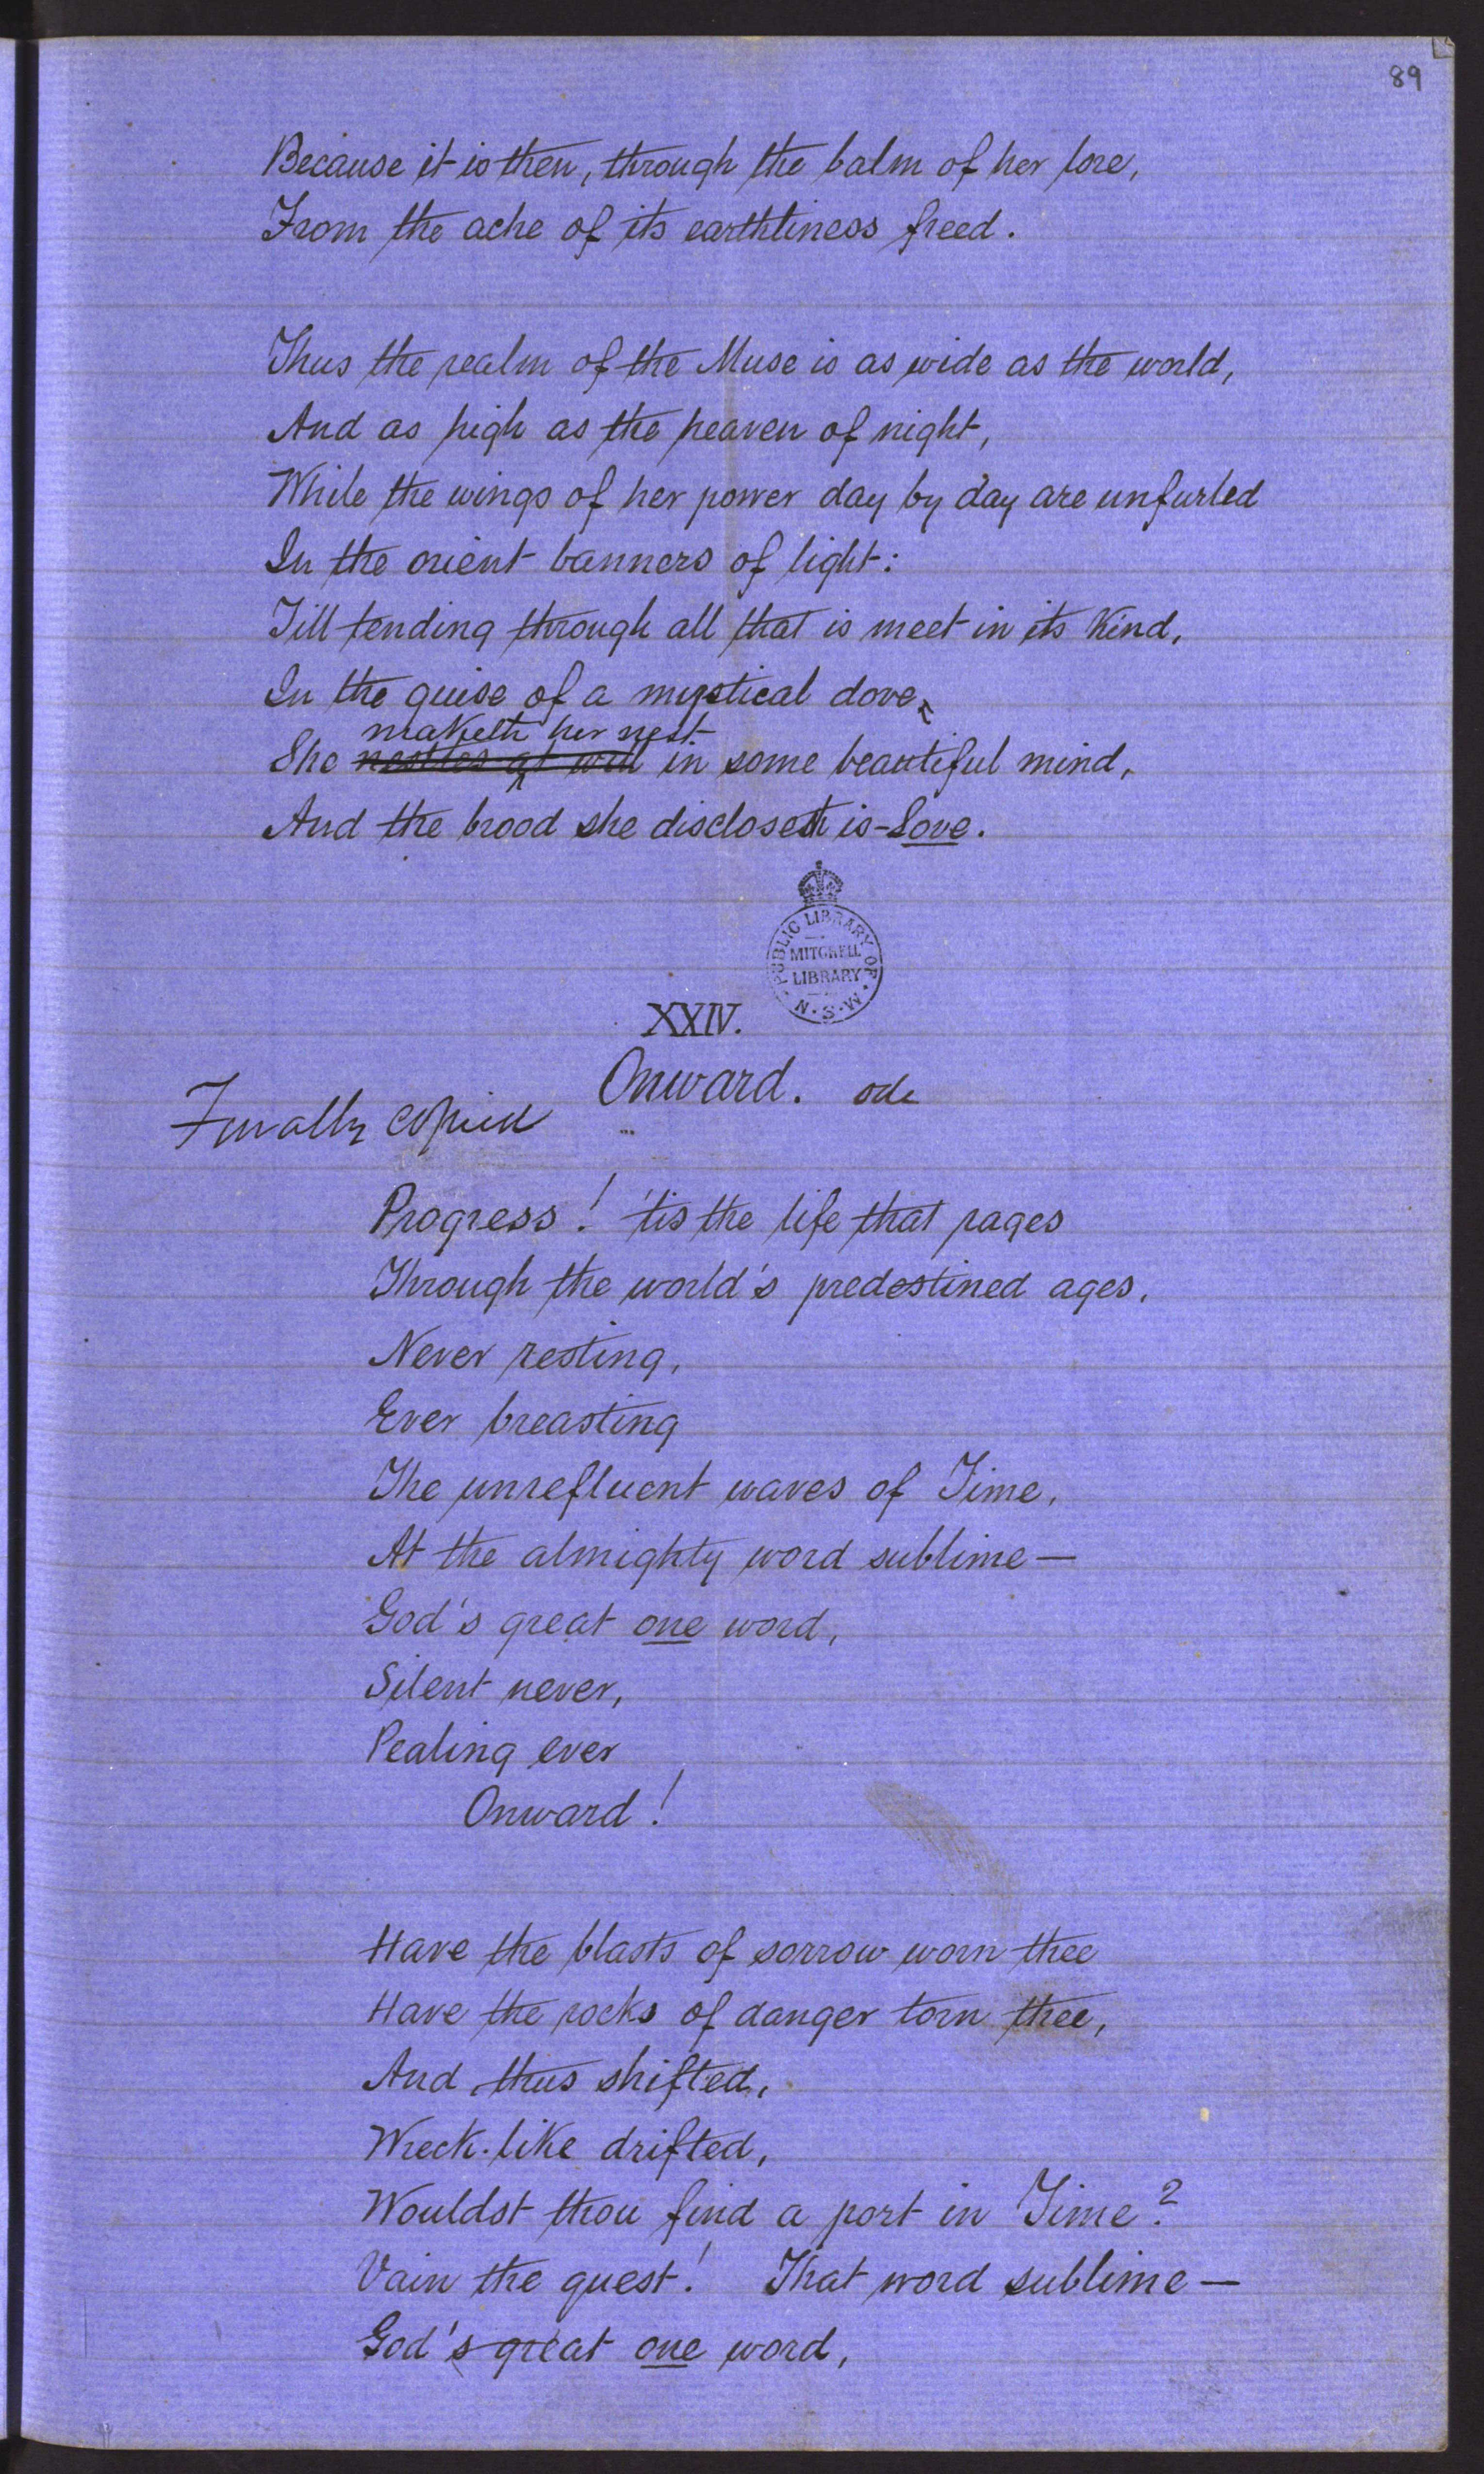 89
Because it is then, through the balm of her lore,
From the ache of its earthliness freed.
Thus the realm of the Muse is as wide as the world,
And as high as the heaven of night,
While the wings of her power day by day are unfurled
In the orient banners of light:
Till tending through all that is meet in its kind,
In the guise of a mystical dove,
maketh her nest
She nestles at will in some beautiful mind,
And the brood she discloseth is–Love.
PUBLIC LIBRARY OF N.S.W.
MITCHELL
LIBRARY
XXIV.
Onward. ode
Finally copied
Progress! 'tis the life that rages
Through the world's predestined ages,
Never resting,
Ever breasting
The unrefluent waves of Time,
At the almighty word sublime—
God's great one word,
Silent never,
Pealing ever
Onward!
Have the blasts of sorrow worn thee
Have the rocks of danger torn thee,
And thus shifted,
Wreck-like drifted,
Wouldst thou find a port in Time?
Vain the quest! That word sublime—
God's great one word,